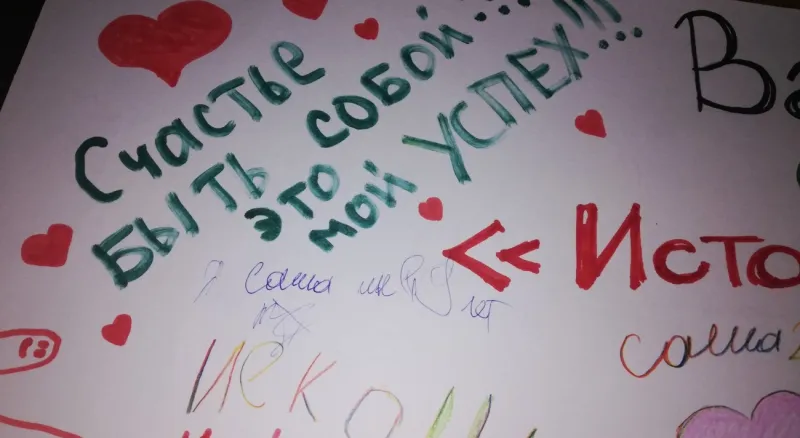 Счастье
БЫТЬ СОБОЙ...
ЭТО
МОЙ УСПЕХ!!!...
<< Исто
я саша мне 9 лет
саша